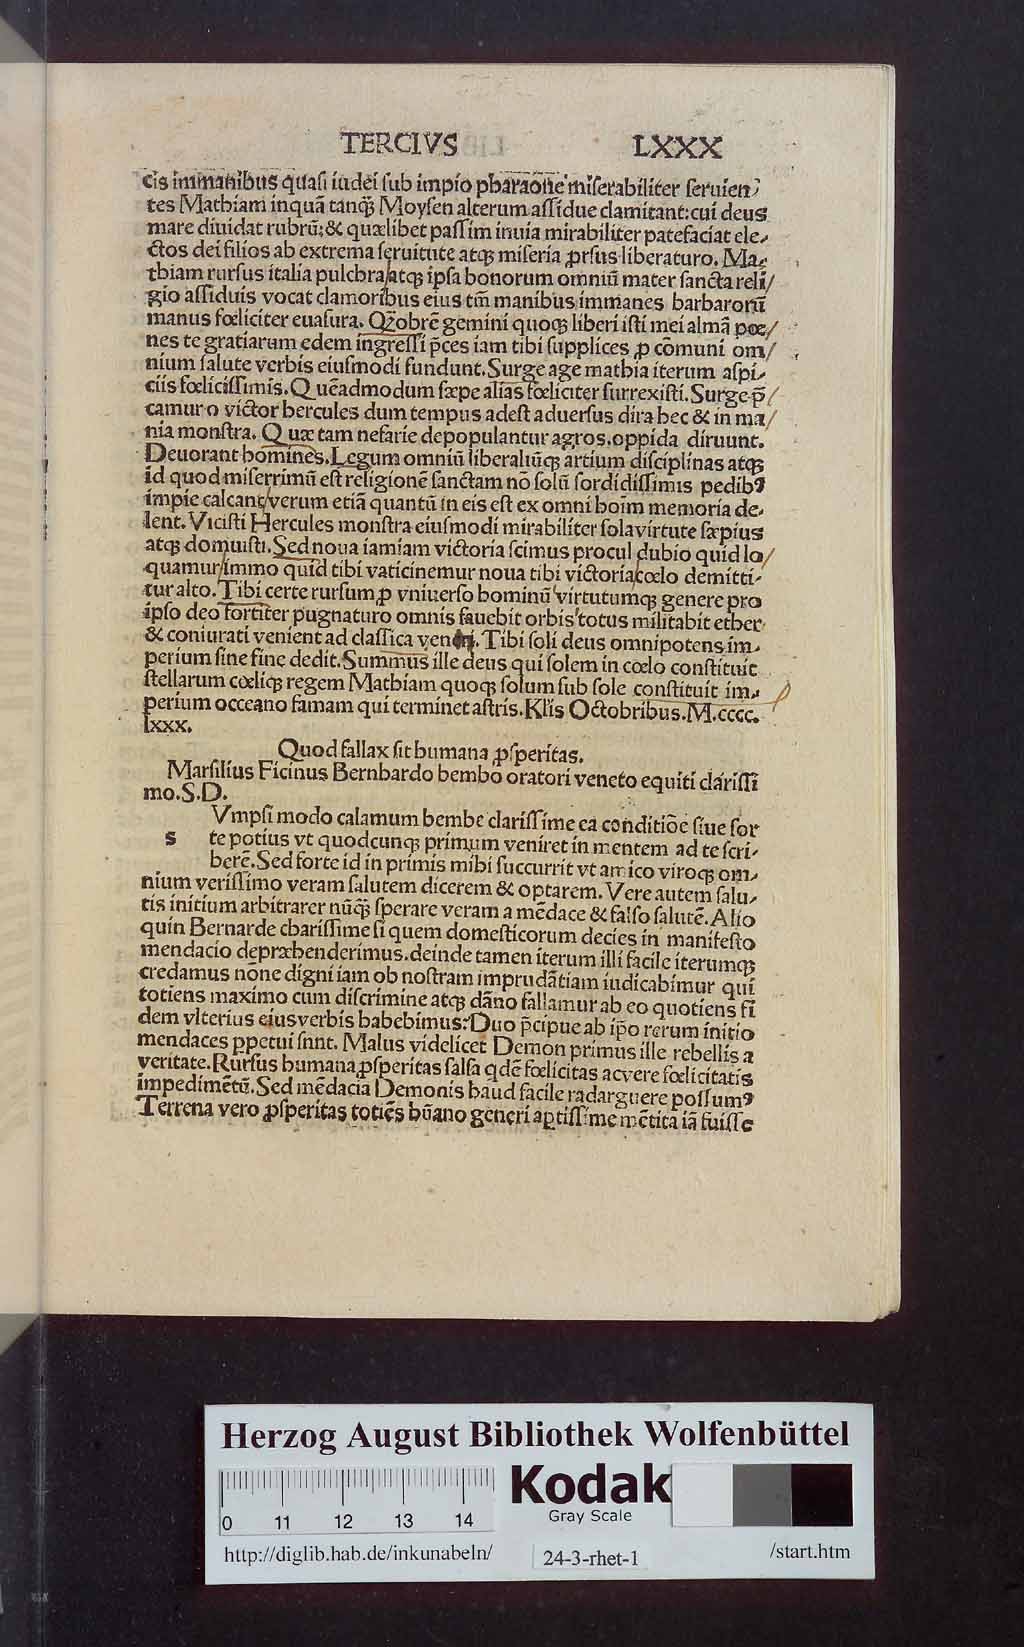 TERCIVS LXXX
cis immanibus quasi iudei sub impio pharaone miserabiliter seruien
tes Mathiam inquā tanq̄ Moysen alterum assidue clamitant: cui deus
mare diuidat rubrū: & quælibet passim inuia mirabiliter patefaciat ele-
ctos dei filios ab extrema seruitute atq; miseria ꝓrsus liberaturo. Ma-
thiam rursus italia pulchra/atq; ipsa bonorum omniū mater sancta reli/
gio assiduis vocat clamoribus eius tm̄ manibus immanes barbarorū
manus fœliciter euasura. Qȝobrē gemini quoq; liberi isti mei almā pœ/
nes te gratiarum edem ingressi p̄ces iam tibi supplices ꝓ cōmuni om/
nium salute verbis eiusmodi fundunt. Surge age mathia iterum aspi-
ciis fœlicissimis. Quēadmodum sæpe alias fœliciter surrexisti. Surge p̄/
camur o victor hercules dum tempus adest aduersus dira hec & in ma/
nia monstra. Quæ tam nefarie depopulantur agros. oppida diruunt.
Deuorant homines. Legum omniū liberaliūq; artium disciplinas atq;
id quod miserrimū est religionē sanctam nō solū sordidissimis pedibꝰ
impie calcant/verum etiā quantū in eis est ex omni hoīm memoria de-
lent. Vicisti Hercules monstra eiusmodi mirabiliter sola virtute sæpius
atq; domuisti. Sed noua iamiam victoria scimus procul dubio quid lo/
quamur/immo quid tibi vaticinemur noua tibi victoria/cœlo demitti-
tur alto. Tibi certe rursum ꝓ vniuerso hominū virtutumq; genere pro
ipso deo fortiter pugnaturo omnis fauebit orbis totus militabit ether
& coniurati venient ad classica venti. Tibi soli deus omnipotens im-
perium sine fine dedit. Summus ille deus qui solem in cœlo constituit
stellarum cœliq; regem Mathiam quoq; solum sub sole constituit im-
perium occeano famam qui terminet astris. Kl̄is Octobribus. M.cccc.
lxxx.
Quod fallax sit humana ꝓsperitas.
Marsilius Ficinus Bernhardo bembo oratori veneto equiti clarissi
mo. S. D.
Vmpsi modo calamum bembe clarissime ea conditiōe siue for
s te potius vt quodcunq; primum veniret in mentem ad te scri-
berē. Sed forte id in primis mihi succurrit vt amico viroq; om-
nium verissimo veram salutem dicerem & optarem. Vere autem salu-
tis initium arbitrarer nūq̄ sperare veram a mēdace & falso salutē. Alio
quin Bernarde charissime si quem domesticorum decies in manifesto
mendacio depræhenderimus. deinde tamen iterum illi facile iterumq;
credamus none digni iam ob nostram imprudātiam iudicabimur qui
totiens maximo cum discrimine atq; dāno fallamur ab eo quotiens fi
dem vlterius eius verbis habebimus: Duo p̄cipue ab ip̄o rerum initio
mendaces ppetui snnt. Malus videlicet Demon primus ille rebellis a
veritate. Rursus humana ꝓsperitas falsa qdē fœlicitas ac vere fœlicitatis
impedimētū. Sed mēdacia Demonis haud facile radarguere possumꝰ
Terrena vero ꝓsperitas totiēs hūano generi aptissime mētita iā fuisse
Herzog August Bibliothek Wolfenbüttel
0 11 12 13 14
Kodak
Gray Scale
http://diglib.hab.de/inkunabeln/ 24-3-rhet-1 /start.htm